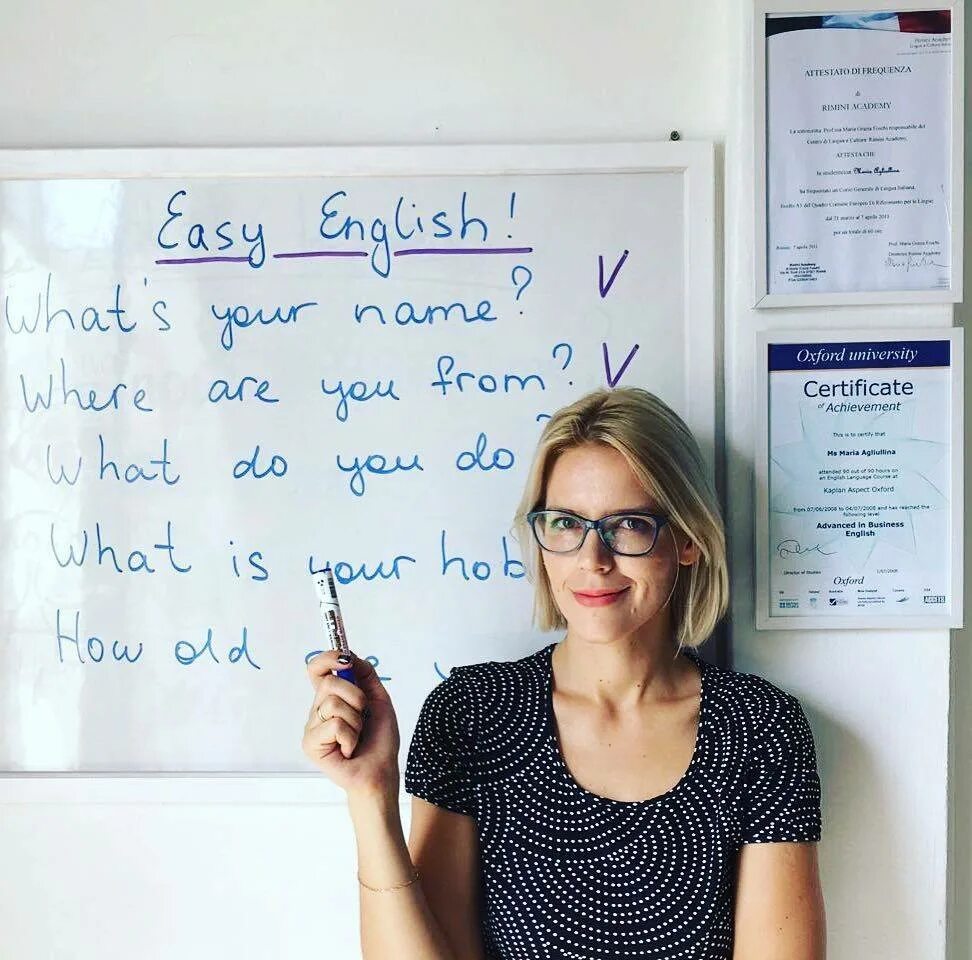 Easy English!
What's your name? V
Where are you from? V
What do you do ?
What is your hob
How old
ATTESTATO DI FREQUENZA
di
RIMINI ACADEMY
La sottoscritta Prof.ssa Maria Grazia Foschi responsabile del
Centro di Lingua e Cultura Rimini Academy,
ATTESTA CHE
la studentessa Maria Agliullina
ha frequentato un Corso Generale di Lingua Italiana,
livello A1 del Quadro Comune Europeo Di Riferimento per le Lingue
dal 21 marzo al 7 aprile 2011
per un totale di 60 ore
Rimini, 7 aprile 2011
Prof. Maria Grazia Foschi
Direttrice Rimini Academy
Rimini Academy
Oxford university
Certificate
of Achievement
This is to certify that
Ms Maria Agliullina
attended 90 out of 90 hours on
an English Language Course at
Kaplan Aspect Oxford
from 07/06/2008 to 04/07/2008 and has reached the
following level
Advanced in Business
English
Director of Studies
Oxford
UK Ireland Australia New Zealand Canada USA
BRITISH COUNCIL
ACCET